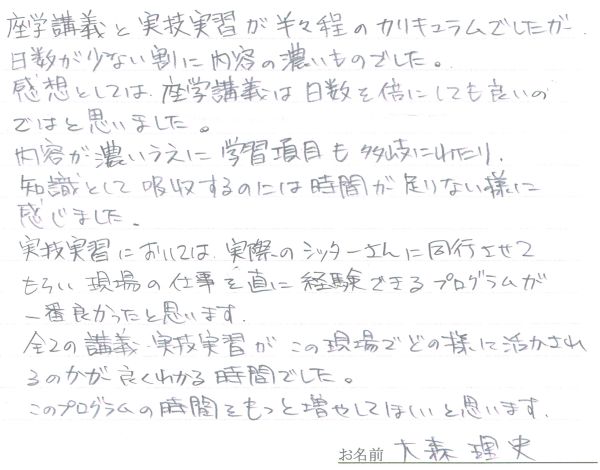 座学講義と実技実習が半々程のカリキュラムでしたが、
日数が少ない割に内容の濃いものでした。
感想としては、座学講義は日数を倍にしても良いの
ではと思いました。
内容が濃いうえに学習項目も多岐にわたり、
知識として吸収するのには時間が足りない様に
感じました。
実技実習においては、実際のシッターさんに同行させて
もらい現場の仕事を直に経験できるプログラムが
一番良かったと思います。
全ての講義、実技実習がこの現場でどの様に活かされ
るのかが良くわかる時間でした。
このプログラムの時間をもっと増やしてほしいと思います。
お名前 大森理史